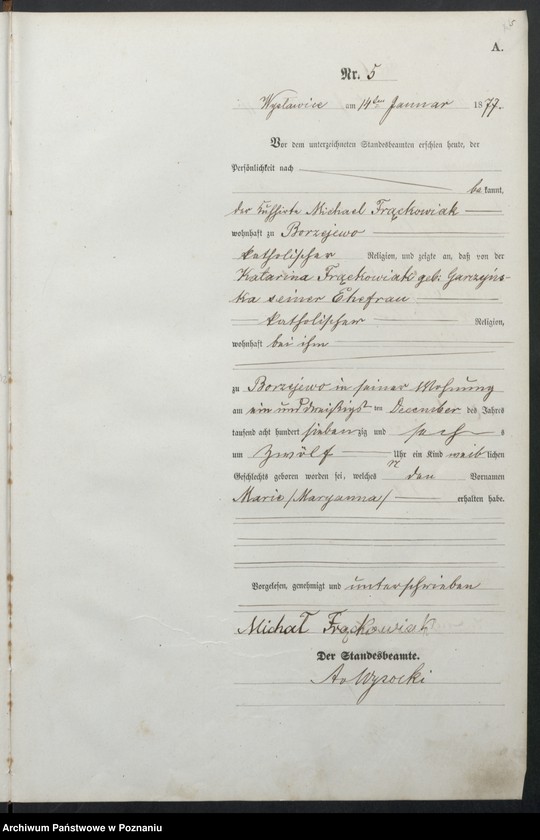 A.
Nr. 5
am 14ten Januar 1877.
Vor dem unterzeichneten Standesbeamten erschien heute, der
Persönlichkeit nach
be kannt,
der Kuhhirte Michael Frąckowiak
wohnhaft zu Borzejewo
katholischer Religion, und zeigte an, daß von der
Katarina Frąckowiak geb. Garzyńs-
ka seiner Ehefrau
katholischer Religion,
wohnhaft bei ihm
zu Borzejewo in seiner Wohnung
am ein und dreißigst ten December des Jahres
tausend acht hundert sieben zig und sech s
um Zwölf Uhr ein Kind weib lichen
Geschlechts geboren worden sei, welches den Vornamen
Marie /Maryanna/ erhalten habe.
Vorgelesen, genehmigt und unterschrieben
Michał Frąckowiak
Der Standesbeamte.
Wysocki
Archiwum Państwowe w Poznaniu